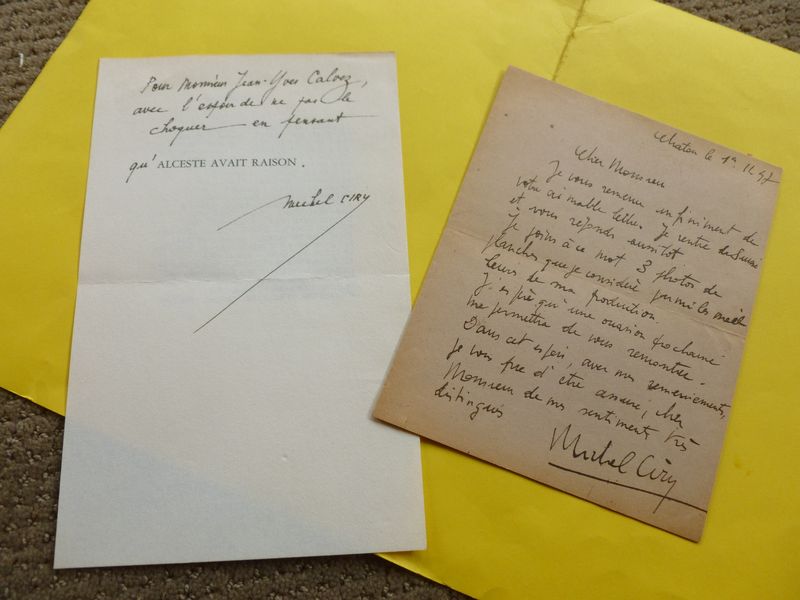 Pour Monsieur Jean-Yves Calvez,
avec l'espoir de ne pas le
choquer en pensant
qu' ALCESTE AVAIT RAISON.
Michel CIRY
Chatou le 1
Cher Monsieur
Je vous remercie infiniment de
votre aimable lettre. Je rentre de Suisse
et vous réponds aussitôt
Je joins à ce mot 3 photos de
planches que je considère parmi les meil
leurs de ma production
J'espère qu'une occasion prochaine
me permettra de vous rencontrer.
Dans cet espoir, avec mes remerciements,
je vous prie d'être assuré, cher
Monsieur de mes sentiments très
distingués
Michel Ciry